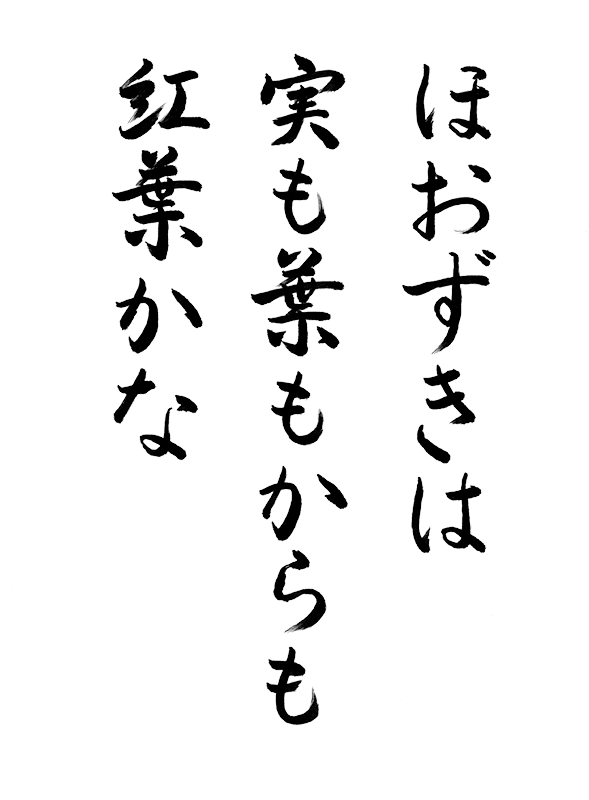 ほおずきは
実も葉もからも
紅葉かな